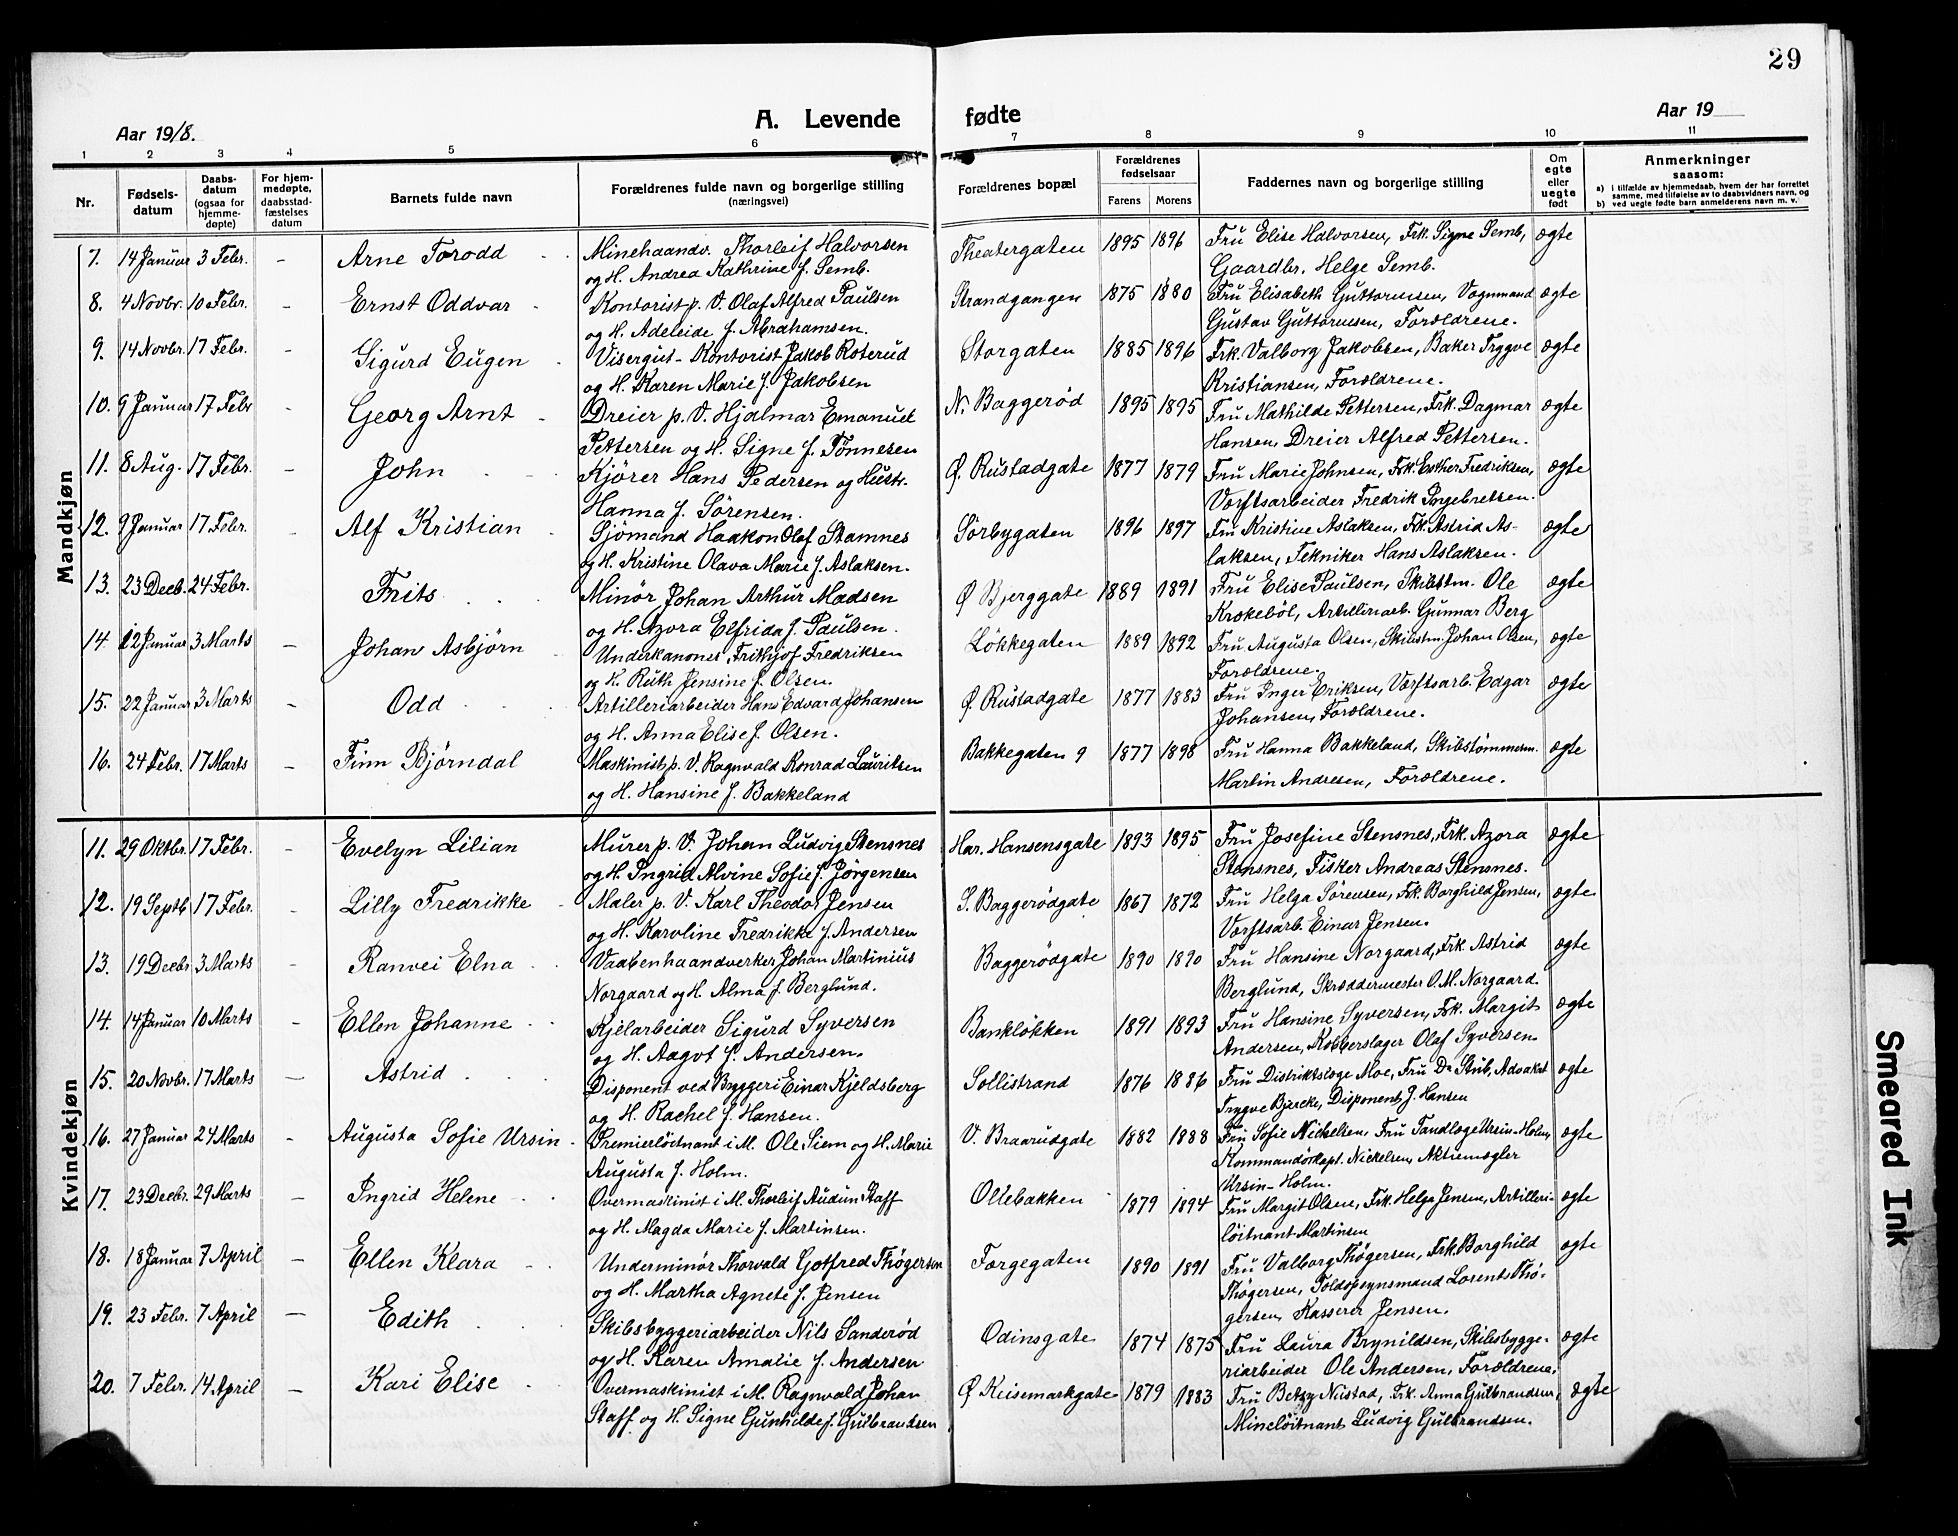 29
Aar 1918.
A. Levende fødte
Aar 19
1 2 3 4 5 6 7 8 9 10 11
Nr.
Fødsels-
datum
Daabs-
datum
(ogsaa for
hjemme-
døpte)
For hjem-
medøpte,
daabsstad-
fæstelses
datum
Barnets fulde navn
Forældrenes fulde navn og borgerlige stilling
(næringsvei)
Forældrenes bopæl
Forældrenes
fødselsaar
Farens Morens
Faddernes navn og borgerlige stilling
Om
egte
eller
uegte
født
Anmerkninger
saasom:
a) i tilfælde av hjemmedaab, hvem der har forrettet
samme, med tilføielse av to daabsvidners navn, og
b) ved uegte fødte barn anmelderens navn m. v.
Mandkjøn
7. 14 Januar 3 Febr. - Arne Torodd Minehaandv. Thorleif Halvorsen Theatergaten 1895 1896 Fru Elise Halvorsen, Frk. Signe Semb, ægte
og H. Andrea Kathrine f. Semb. Gaardbr. Helge Semb.
8. 4 Novbr. 10 Febr. - Ernst Oddvar Kontorist p. V. Olaf Alfred Paulsen Strandgangen 1875 1880 Fru Elisabeth Guttormsen, Vognmand ægte
og H. Adeleide f. Abrahamsen. Gustav Guttormsen, Forældrene.
9. 14 Novbr. 17 Febr. - Sigurd Eugen Visergut - Kontorist Jakob Roterud Storgaten 1885 1896 Frk. Valborg Jakobsen, Baker Trygve ægte
og H. Karen Marie f. Jakobsen Kristiansen, Forældrene.
10. 9 Januar 17 Febr - Georg Arnt Dreier p. V. Hjalmar Emanuel N. Baggerød 1895 1895 Fru Mathilde Pettersen, Frk. Dagmar ægte
Pettersen og H. Signe f. Tönnesen Hansen, Dreier Alfred Pettersen.
11. 8 Aug. 17 Febr. - John Kjörer Hans Pedersen og Hustr. Ø. Rustadgate 1877 1879 Fru Marie Johnsen, Frk. Esther Fredriksen, ægte
Hanna f. Sørensen. Værftsarbeider Fredrik Ingebretsen.
12. 9 Januar 17 Febr. - Alf Kristian Sjömand Haakon Olaf Stamnes Sørbygaten 1896 1897 Fru Kristine Aslaksen, Frk. Astrid As- ægte
og H. Kristine Olava Marie f. Aslaksen. laksen, Tekniker Hans Aslaksen.
13. 23 Decb. 24 Febr. Frits Minör Johan Arthur Madsen Ø Bjerggate 1889 1891 Fru Elise Paulsen, Skibstm. Ole ægte
og H. Azora Elfrida f. Paulsen. Krokeböl, Artilleriarb. Gunnar Berg
14 12 Januar 3 Marts - Johan Asbjörn Underkanoner Frithjof Fredriksen Løkkegaten 1889 1892 Fru Augusta Olsen, Skibstm. Johan Olsen, ægte
og H. Ruth Jensine f. Olsen. Forældrene.
15. 22 Januar 3 Marts - Odd Artilleriarbeider Hans Edvard Johansen Ø. Rustadgate 1877 1883 Fru Inger Eriksen, Værftsarb. Edgar ægte
og H. Anna Elise f. Olsen. Johansen, Forældrene.
16. 24 Febr. 17 Marts - Finn Bjørndal Maskinist p. V. Ragnvald Konrad Lauritsen Bakkegaten 9 1877 1898 Fru Hanna Bakkeland, Skibstömmerm. ægte
og H. Hansine f. Bakkeland Martin Andresen, Forældrene.
Kvindekjøn
11. 29 Oktbr. 17 Febr. - Evelyn Lilian Murer p. V. Johan Ludvig Stensnes Har. Hansensgate 1893 1895 Fru Josefine Stensnes, Frk. Azora ægte
og H. Ingrid Alvine Sofie f. Jørgensen Stensnes, Fisker Andreas Stensnes.
12. 19 Septb. 17 Febr. - Lilly Fredrikke Maler p. V. Karl Theodor Jensen S. Baggerødgate 1867 1872 Fru Helga Sörensen, Frk. Borghild Jensen, ægte
og H. Karoline Fredrikke f. Andersen Værftsarb. Einar Jensen.
13. 19 Decbr 3 Marts - Ranvei Elna Vaabenhaandverker Johan Martinius Baggerødgate 1890 1890 Fru Hansine Norgaard, Frk Astrid ægte
Norgaard og H. Alma f. Berglund. Berglund, Skræddermester O. M. Norgaard.
14. 14 Januar 10 Marts - Ellen Johanne Kjelarbeider Sigurd Syversen Bankløkken 1891 1893 Fru Hansine Syversen, Frk. Margit ægte
og H. Aagot f. Andersen. Andersen, Kobberslager Olaf Syversen.
15. 20 Novbr. 17 Marts - Astrid Disponent ved Byggeri Einar Kjeldsberg Sollistrand 1876 1886 Fru Distriktslæge Moe, Fru Dr. Stub, Advokat ægte
og H. Rachel f. Hansen. Trygve Bjercke, Disponent J. Hansen
16. 27 Januar 24 Marts - Augusta Sofie Ursin Premierlöitnant i M. Ole Siem og H. Marie V. Braarudgate 1882 1888 Fru Sofie Nickelsen, Fru Tandlæge Ursin-Holm, ægte
Augusta f. Holm. Kommandörkapt. Nickelsen, Aktiemægler
Ursin-Holm.
17. 23 Decbr. 29 Marts - Ingrid Helene Overmaskinist i M. Thorleif Audun Staff Ollebakken 1879 1894 Fru Margit Olsen, Frk. Helga Jensen, Artilleri- ægte
og H. Magda Marie f. Martinsen. löitnant Martinsen
18. 18 Januar 7 April - Ellen Klara Underminör Thorvald Gotfred Thögersen Færgegaten 1890 1891 Fru Valborg Thögersen, Frk. Borghild ægte
og H. Martha Agnete f. Jensen Thögersen, Toldopsynsmand Lorents Thö-
gersen, Kasserer Jensen.
19. 23 Febr. 7 April - Edith Skibsbyggeriarbeider Nils Sanderød Odinsgate 1874 1875 Fru Laura Brynildsen, Skibsbygge- ægte
og H. Karen Amalie f. Andersen riarbeider Ole Andersen, Forældrene.
20. 7 Febr. 14 April - Kari Elise Overmaskinist i M. Ragnvald Johan Ø Keisemarkgate 1879 1883 Fru Betzy Nistad, Frk. Anna Gulbrandsen, ægte
Staff og H. Signe Gunhilde f. Gulbrandsen Mineløitnant Ludvig Gulbrandsen.
Smeared Ink